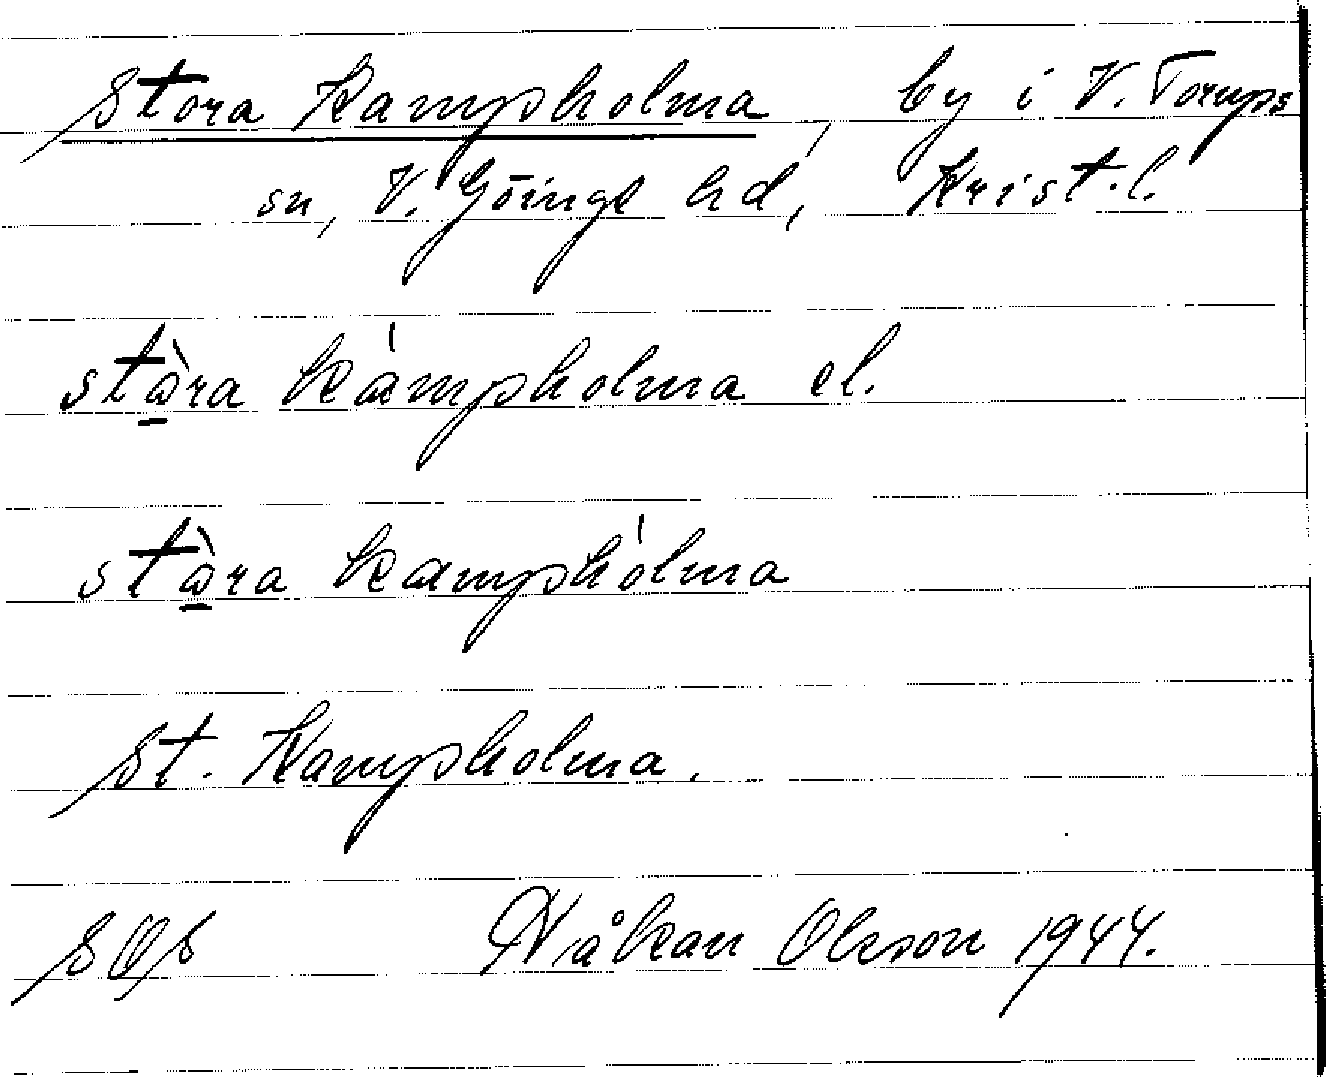 Stora Kampholma, by i V. Torups
sn, V. Göinge hd, Krist. l.
stò̠ra kámpholma el.
stò̠ra kamphólma
St. Kampholma.
SOS Håkan Olsson 1944.